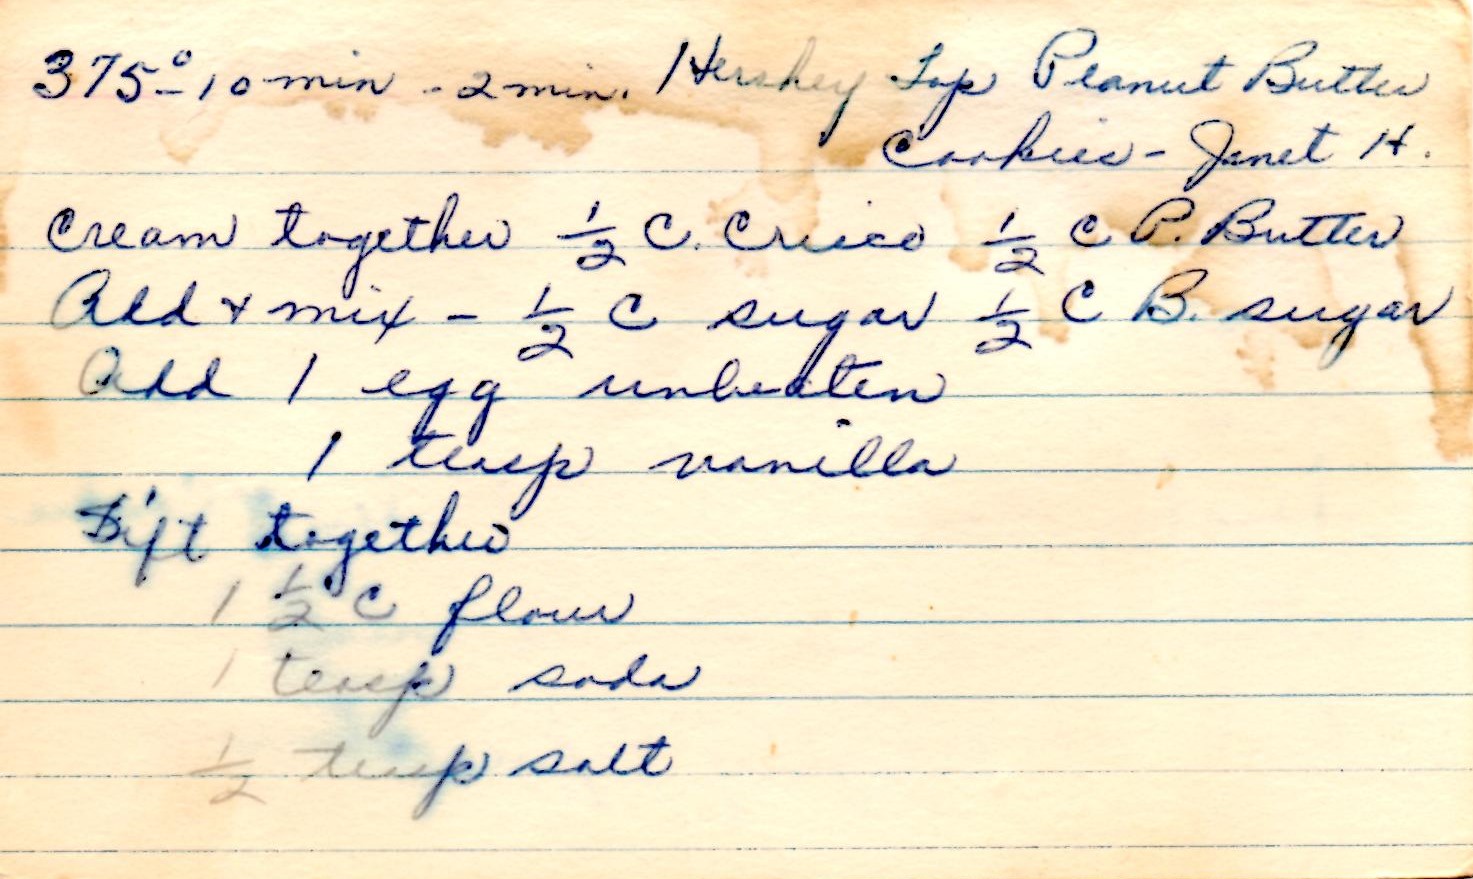 375° - 10 min - 2 min. Hershey Top Peanut Butter
Cookies - Janet H.
Cream together 1/2 C. Crisco 1/2 C P. Butter
Add + mix - 1/2 C sugar 1/2 C B. sugar
Add 1 egg unbeaten
1 teasp vanilla
Sift together
1 1/2 C flour
1 teasp soda
1/2 teasp salt